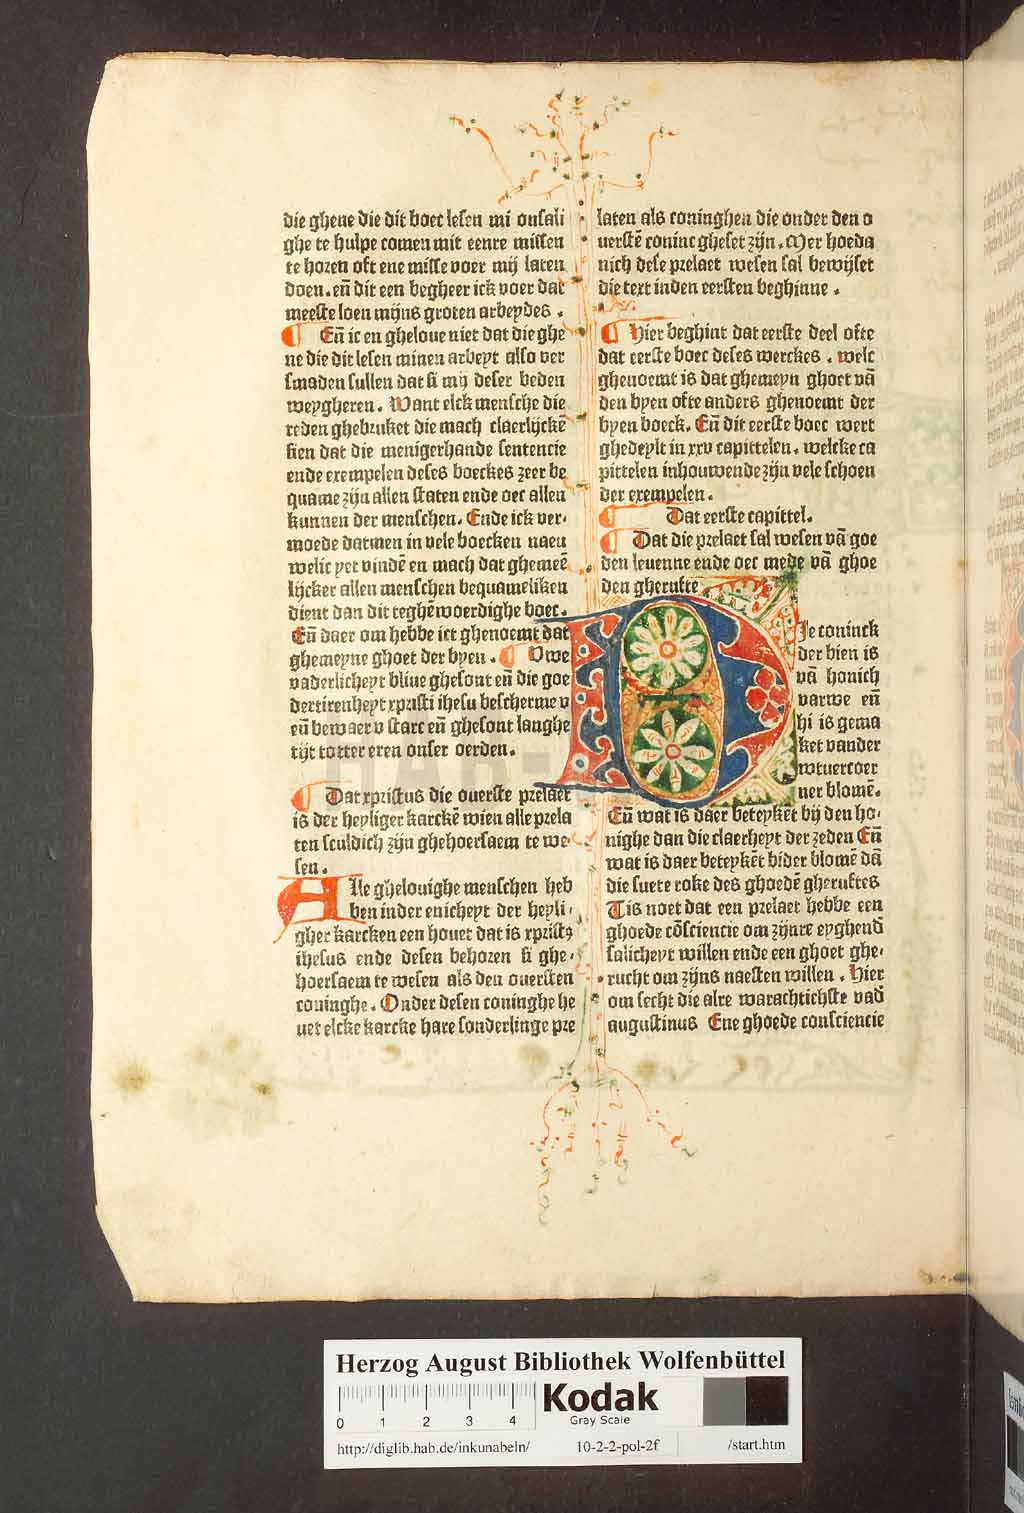 die ghene die dit boec lesen mi onsali
ghe te hulpe comen mit eenre missen
te horen oft ene misse voer mij laten
doen. en̄ dit een begheer ick voer dat
meeste loen mijns groten arbeydes.
¶ En̄ ic en gheloue niet dat die ghe
ne die dit lesen minen arbeyt also ver
smaden sullen dat si mij deser beden
weygheren. Want elck mensche die
reden ghebruket die mach claerlijckē
sien dat die menigerhande sentencie
ende exempelen deses boeckes zeer be
quame zijn allen staten ende oec allen
kunnen der menschen. Ende ick ver-
moede datmen in vele boecken naeu
welic yet vindē en mach dat ghemeē
lijcker allen menschen bequameliken
dient dan dit teghēwoerdighe boec.
En̄ daer om hebbe ict ghenoemt dat
ghemeyne ghoet der byen. ¶ Vwe
vaderlicheyt bliue ghesont en̄ die goe
dertirenheyt xpristi ihesu bescherme v
en̄ bewaer v starc en̄ ghesont langhe
tijt totter eren onser oerden.
¶ Dat xpristus die ouerste prelaet
is der heyliger karckē wien alle prela
ten sculdich zijn ghehoersaem te we-
sen.
Alle ghelouighe menschen heb
ben inder enicheyt der heyli-
gher karcken een houet dat is xpristꝰ
ihesus ende desen behoren si ghe-
hoersaem te wesen als den ouersten
coninghe. Onder desen coninghe he
uet elcke karcke hare sonderlinge pre
laten als coninghen die onder den o
uerstē coninc gheset zijn. Mer hoeda
nich dese prelaet wesen sal bewijset
die text inden eersten beghinne.
¶ Hier beghint dat eerste deel ofte
dat eerste boec deses werckes. welc
ghenoemt is dat ghemeyn ghoet vā
den byen ofte anders ghenoemt der
byen boeck. En̄ dit eerste boec wert
ghedeylt in xxv capittelen. welcke ca
pittelen inhouwende zijn vele schoen
der exempelen.
¶ Dat eerste capittel.
¶ Dat die prelaet sal wesen vā goe
den leuenne ende oec mede vā ghoe
den gherufte
Die coninck
der bien is
vā honich
varwe en̄
hi is gema
ket vander
wtuercoer
ner blomē.
En̄ wat is daer beteykēt bij den ho-
nighe dan die claerheyt der zeden En̄
wat is daer beteykēt bider blomē dā
die suete roke des ghoedē gheruftes
Tis noet dat een prelaet hebbe een
ghoede cōsciencie om zijnre eyghend̄
salicheyt willen ende een ghoet ghe-
rucht om zijns naesten willen. Hier
om secht die alre warachtichste vad̄
augustinus Ene ghoede consciencie
Herzog August Bibliothek Wolfenbüttel
0 1 2 3 4
Kodak
Gray Scale
http://diglib.hab.de/inkunabeln/ 10-2-2-pol-2f /start.htm